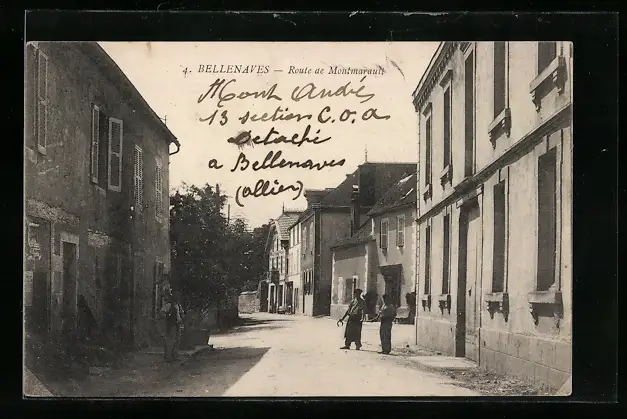 4. BELLENAVES — Route de Montmarault
Mont André
13 section C.O.A
Detaché
a Bellenaves
(allier)